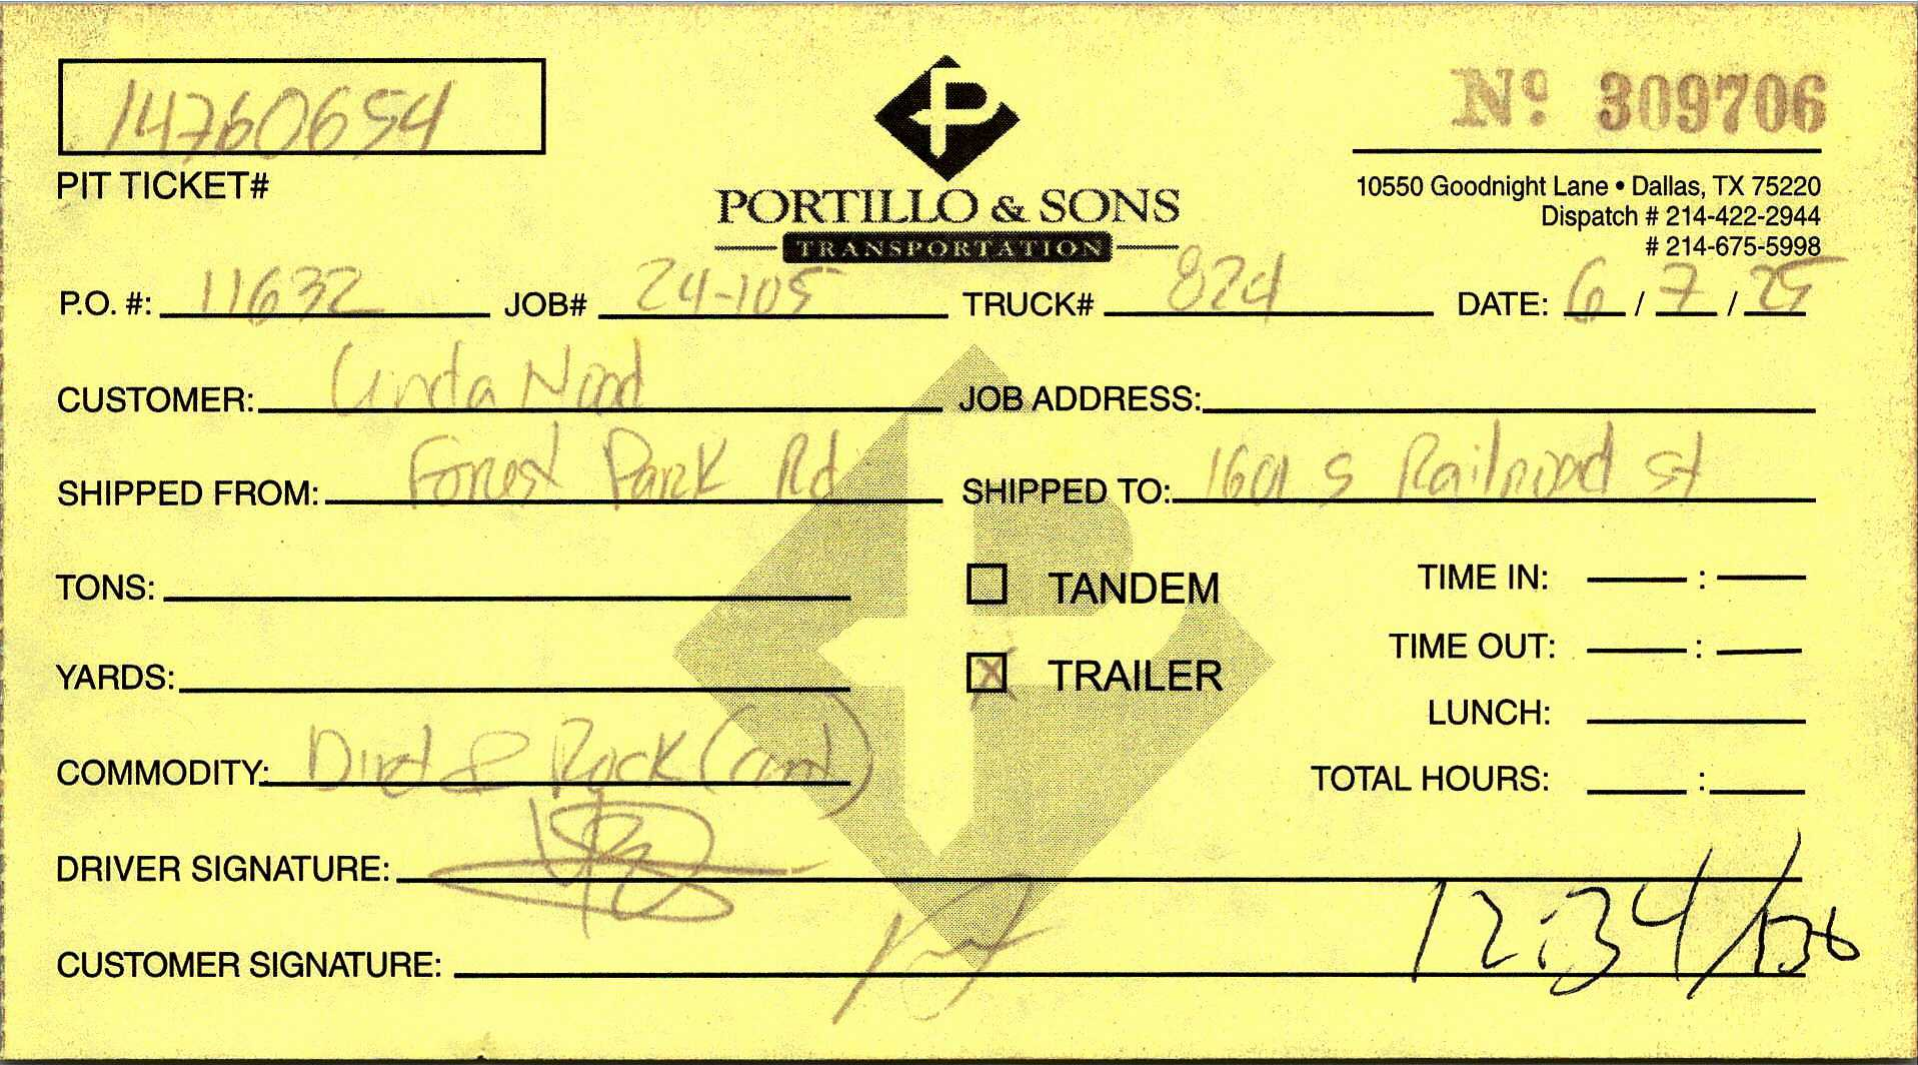 14760654
PIT TICKET#
PORTILLO & SONS
TRANSPORTATION
Nº 309706
10550 Goodnight Lane • Dallas, TX 75220
Dispatch # 214-422-2944
# 214-675-5998
P.O. #: 11632 JOB# 24-105 TRUCK# 824 DATE: 6 / 7 / 25
CUSTOMER: Linda Nood JOB ADDRESS:
SHIPPED FROM: Forest Park Rd SHIPPED TO: 1601 S Railroad St
TONS: TANDEM TIME IN: :
YARDS: X TRAILER TIME OUT: :
LUNCH:
COMMODITY: Dirt & Rock TOTAL HOURS: :
DRIVER SIGNATURE:
12:34/
CUSTOMER SIGNATURE: